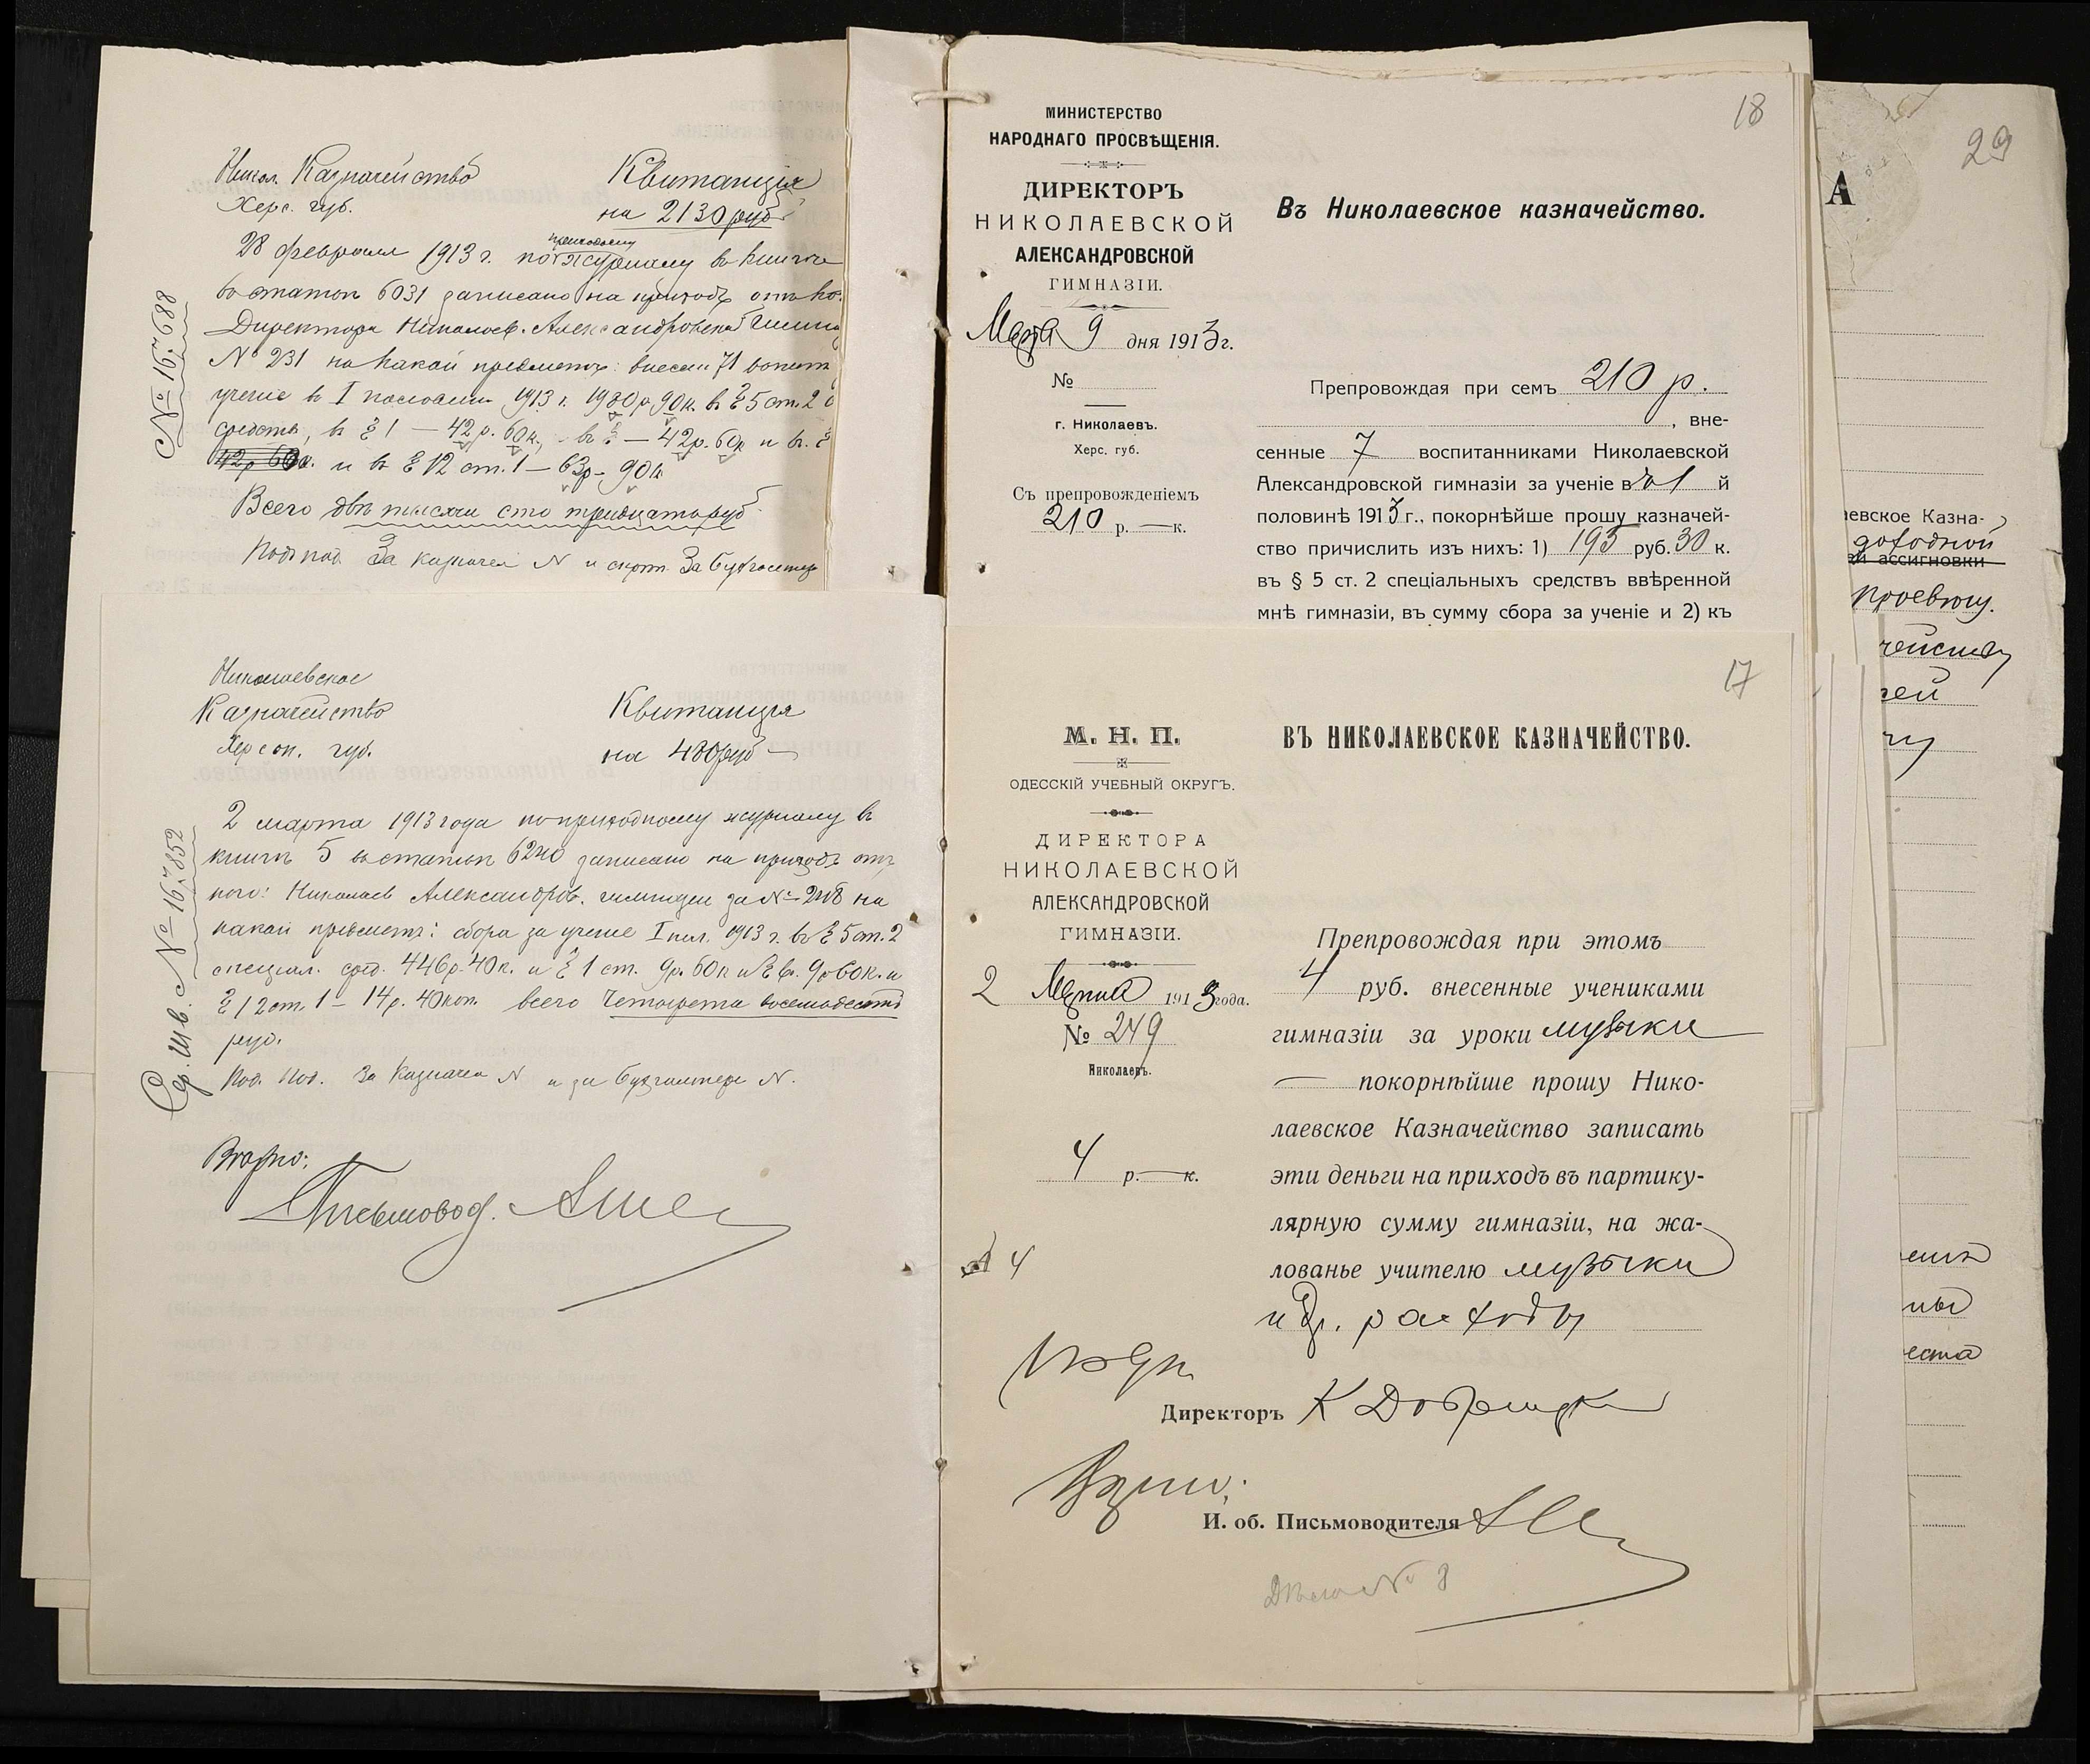 Никол. Казначейство
Херс. губ.
Квитанція
на 2130 руб.
28 февраля 1913 г. по приходному журналу въ книге
въ статью 6031 записано на приходъ отъ ко-
Директора Николаев. Александровской Гимна
№ 231 на какой предметъ: внесен 71 воспит
учение в I половин 1913 г. 1980 р 90 к. в § 5 ст. 2
средства, в § 1 — 42 р. 60 к., в § — 42 р. 60 к и в. §
42 р 60 к. и в § 12 ст. 1 — 63 р. 90 к
Всего две тысячи сто тридцать руб.
Подъ под. За казначея N и скрѣп. За бухгалтер
№ 167688
Николаевское
Казначейство
Херсон. губ.
Квитанція
на 480 руб —
2 марта 1913 года по приходному журналу в
книгѣ 5 въ статью 6240 записано на приходъ отъ
кого: Николаев Александров. гимназіи за № 248 на
какой предметъ: сбора за учение I пол. 1913 г. въ § 5 ст. 2
спеціал. сред. 446 р. 40 к. и § 1 ст. 9 р. 60 к и § 6. 9 р 60 к. и
§ 12 ст. 1 — 14 р. 40 коп. всего Четыреста восемьдесятъ
руб.
Под. Под. За Казначея N и за бухгалтера N.
№ 167852
Вѣрно:
Письмовод.
18
МИНИСТЕРСТВО
НАРОДНАГО ПРОСВѢЩЕНІЯ.
ДИРЕКТОРЪ
НИКОЛАЕВСКОЙ
АЛЕКСАНДРОВСКОЙ
ГИМНАЗІИ.
Марта 9 дня 1913 г.
№
г. Николаевъ.
Херс. губ.
Съ препровожденіемъ
210 р. — к.
Въ Николаевское казначейство.
Препровождая при семъ 210 р.
, вне-
сенные 7 воспитанниками Николаевской
Александровской гимназіи за ученіе въ 1 й
половинѣ 1913 г., покорнѣйше прошу казначей-
ство причислить изъ нихъ: 1) 195 руб. 30 к.
въ § 5 ст. 2 спеціальныхъ средствъ ввѣренной
мнѣ гимназіи, въ сумму сбора за ученіе и 2) къ
17
М. Н. П.
ОДЕССКІЙ УЧЕБНЫЙ ОКРУГЪ.
ДИРЕКТОРА
НИКОЛАЕВСКОЙ
АЛЕКСАНДРОВСКОЙ
ГИМНАЗІИ.
2 Марта 1913 года.
№ 249
Николаевъ.
4 р. — к.
4
ВЪ НИКОЛАЕВСКОЕ КАЗНАЧЕЙСТВО.
Препровождая при этомъ
4 руб. внесенные учениками
гимназіи за уроки музыки
— покорнѣйше прошу Нико-
лаевское Казначейство записать
эти деньги на приходъ въ партику-
лярную сумму гимназіи, на жа-
лованье учителю музыки
и др. расходы
Директоръ
И. об. Письмоводителя
Дѣло № 8
29
А
аевское Казна-
доходной
ой ассигновки
проевтсу.
чейству
чей
еста